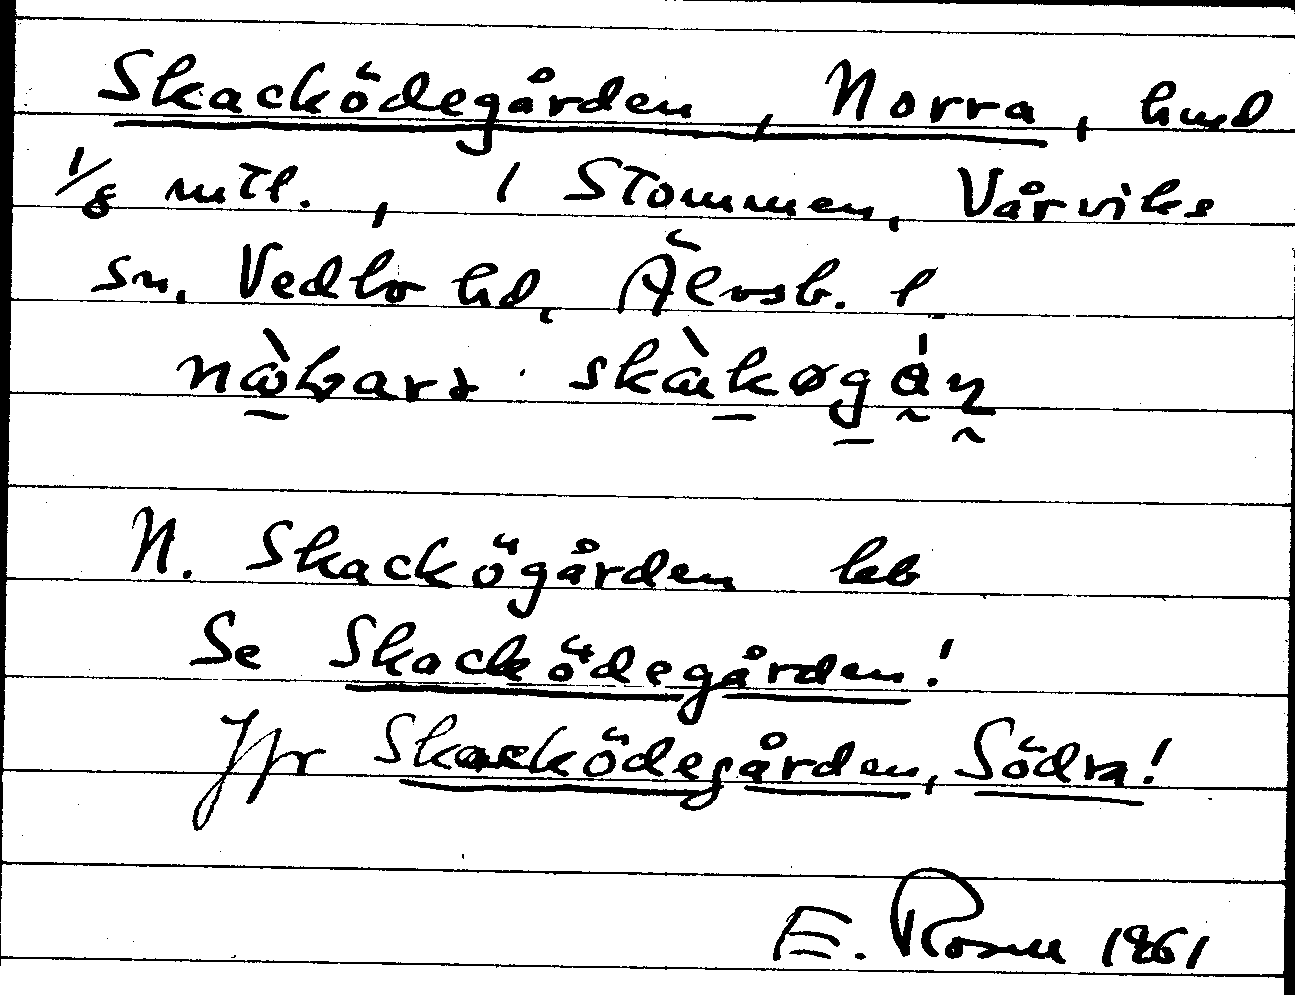 Skacködegården, Norra, hmd
1/8 mtl., 1 Stommen, Vårviks
sn. Vedbo hd, Älvsb. l.
N. Skackögården leb
Se Skacködegården!
Jfr Skacködegården, Södra!
E. Rosn 1961